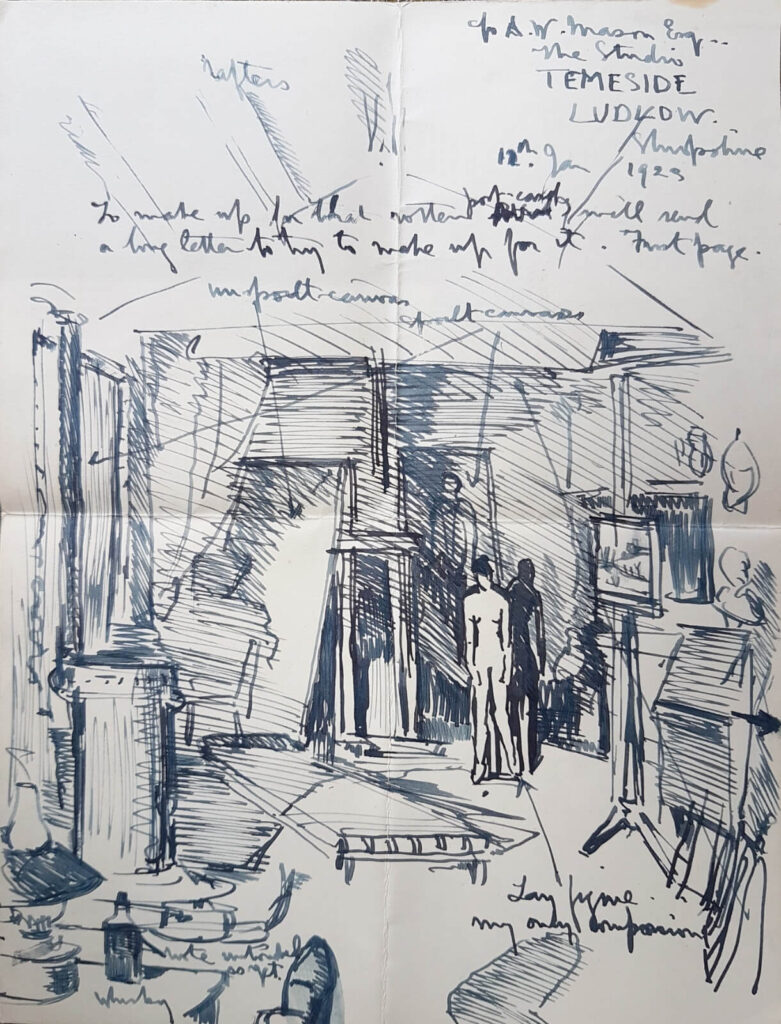 c/o A. W. Mason Esq..
The Studio
TEMESIDE
LUDLOW.
Shropshire
12th Jan 1923
rafters
To make up for that rotten post-card, will send
a long letter to try to make up for it. First page.
unspoilt canvas
spoilt canvases
Lay figure
my only companion
note untouched
whisky